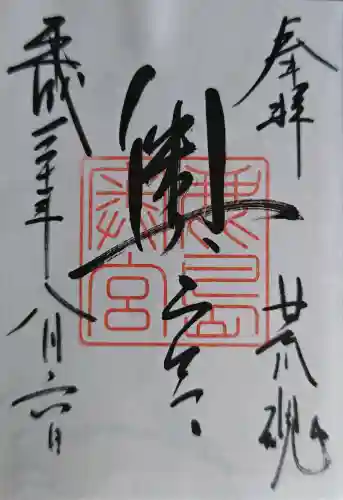 奉拝
荒魂
奥宮
鹿島
奥宮
平成三十年八月六日